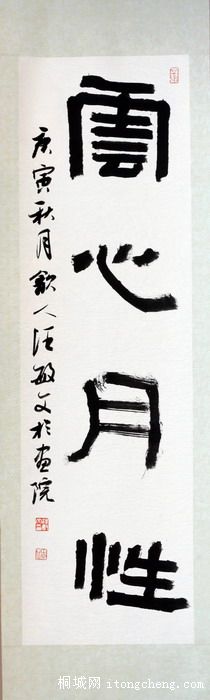 雲心月性
庚寅秋月歙人汪敏文於畫院
桐城网 itongcheng.com